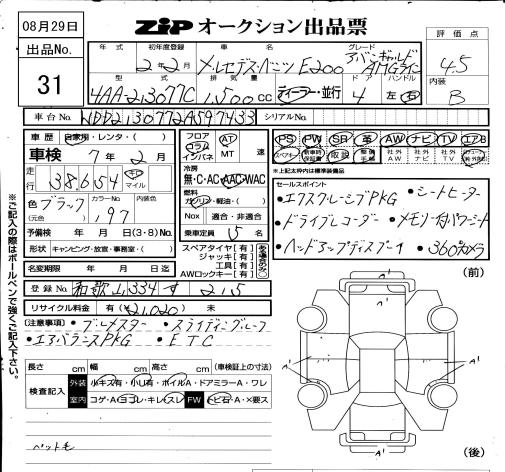 08月29日
ZIP オークション出品票
出品No.
31
評価点
4.5
内装
B
年式 初年度登録 車名 グレード
2年2月 メルセデス・ベンツ E200 アバンギャルド
AMGライン
型式 排気量 ドア ハンドル
4AA-213077C 1,500cc ディーラー・並行 4 左・右
車台No. WDD2130772A597433 シリアルNo.
車歴 自家用・レンタ・( )
車検 7年2月
走行 38,654 キロ マイル
色 ブラック カラーNo. 197
(元色)
予備検 年 月 日(3・8)No.
形状 キャンピング・放宣・事務室・( )
名変期限 年 月 日迄
フロア AT
コラム
インパネ MT 速
冷房
無・C・AC・AAC・WAC
燃料
ガソリン・軽油・( )
Nox 適合・非適合
乗車定員 5名
スペアタイヤ[有]
ジャッキ[有]
工具[有]
AWロックキー[有]
PS PW SR 革 AW ナビ TV エアB
スペアキー 新車時保証書 取説 整備手帳 社外AW 社外ナビ 社外TV
*上記太枠内は標準装備品
セールスポイント
・エクスクルーシブPKG ・シートヒーター
・ドライブレコーダー ・メモリー付パワーシート
・ヘッドアップディスプレイ ・360°カメラ
登録No. 和歌山 334 す 215
リサイクル料金 有(¥21,020) 未
[注意事項] ・ブルメスター ・スライディングルーフ
・エアバランスPKG ・ETC
長さ cm 幅 cm 高さ cm (車検証上の寸法)
検査記入 外装 小キズ有・小凹有・ホイルA・ドアミラーA・ワレ
室内 コゲ・A ヨゴレ・キレ・スレ FW トビ石・A・×要ス
ペット毛
※ご記入の際はボールペンで強くご記入下さい。
(前)
A'
A'
A'
A'
A'
(後)